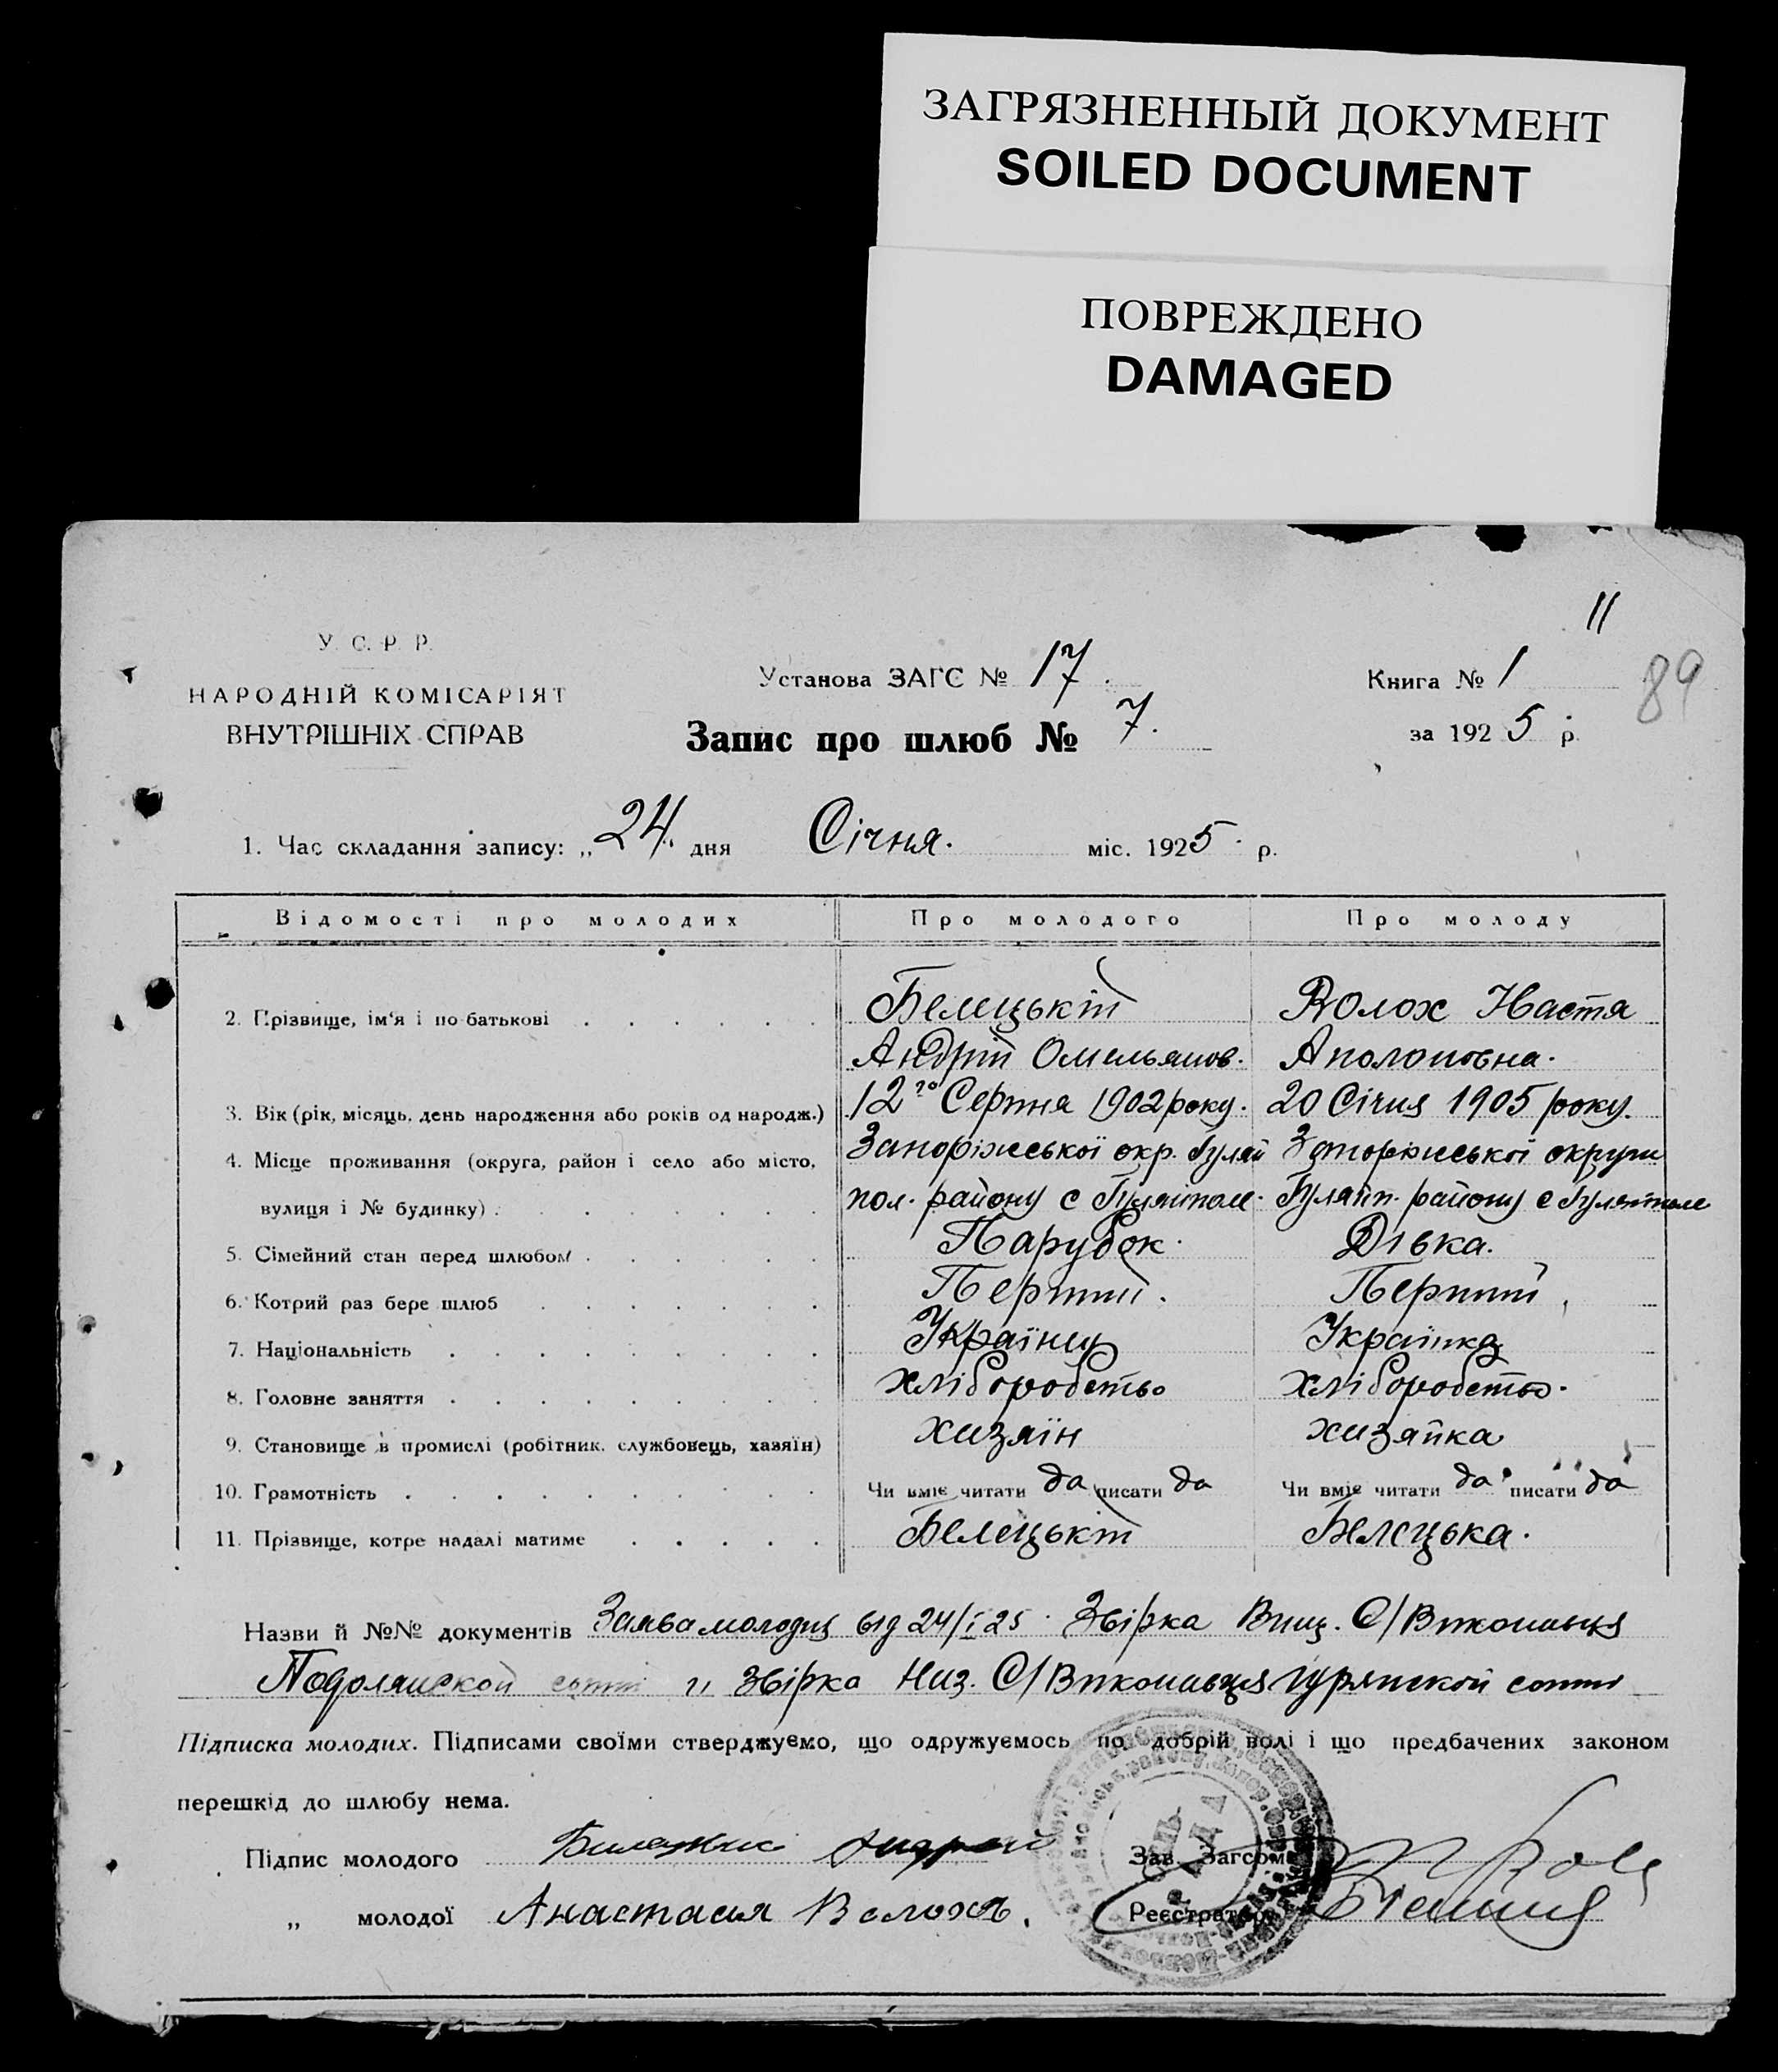 ЗАГРЯЗНЕННЫЙ ДОКУМЕНТ
SOILED DOCUMENT
ПОВРЕЖДЕНО
DAMAGED
11
89
У. С. Р. Р.
НАРОДНІЙ КОМІСАРІЯТ
ВНУТРІШНІХ СПРАВ
Установа ЗАГС № 17.
Запис про шлюб № 7.
Книга № 1
за 1925 р.
1. Час складання запису: „24" дня Січня. міс. 1925 р.
Відомості про молодих Про молодого Про молоду
2. Прізвище, ім'я і по-батькові Белецькій Волох Настя
Андрій Омельянов. Аполоновна.
3. Вік (рік, місяць, день народження або років од народж.) 12го Серпня 1902 року. 20 Січня 1905 року.
4. Місце проживання (округа, район і село або місто, Запоріжської окр. Гуляй Запоріжської округи
вулиця і № будинку) пол. району с Гуляйполе. Гуляйп. району с Гуляйполе
5. Сімейний стан перед шлюбом Парубок. Дівка.
6. Котрий раз бере шлюб Перший. Перший
7. Національність Українец Українка
8. Головне заняття хліборобство хліборобство.
9. Становище в промислі (робітник, службовець, хазяїн) хизяїн хизяйка
10. Грамотність Чи вміє читати да писати да Чи вміє читати да писати да
11. Прізвище, котре надалі матиме Белецькій Белецька.
Назви й №№ документів Заява молодих від 24/I 25. Звірка С/Виконавця
Подолянской сотні и звірка Низ. С/Виконавця Гурянской сотні
Підписка молодих. Підписами своїми стверджуємо, що одружуємось по добрій волі і що предбачених законом
перешкід до шлюбу нема.
Підпис молодого Андрей Зав. Загсом
„ молодої Анастасия Волохъ. Реєстратор